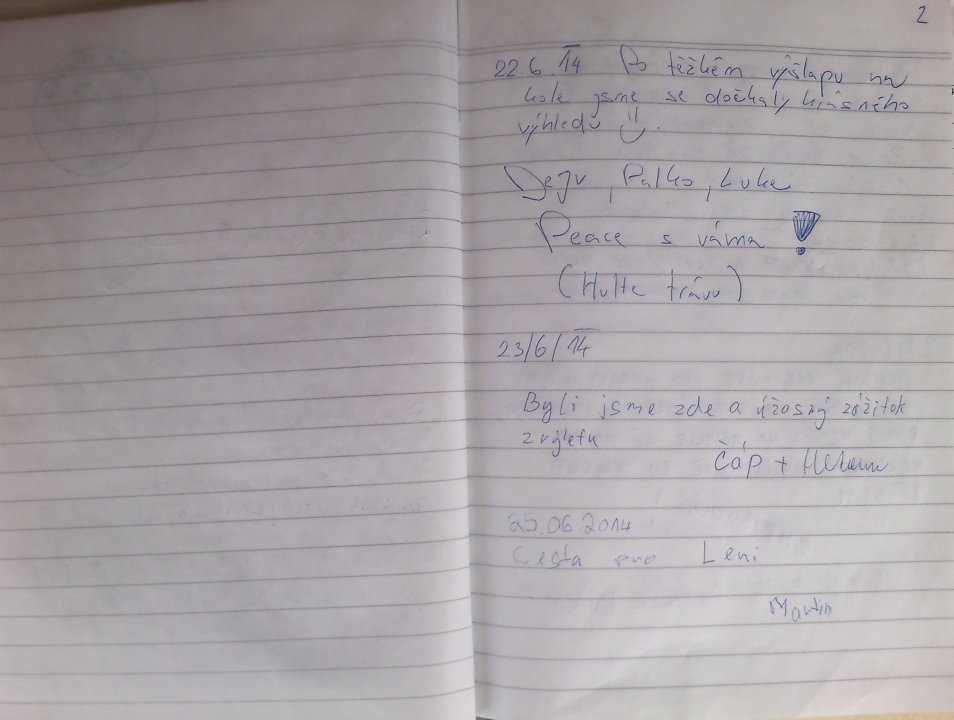 2
22 6. 14 Po těžkém výšlapu na
kole jsme se dočkaly krásného
výhledu
Dejv, Palko, Luke
Peace s váma !
(Hulte trávu)
23/6/14
Byli jsme zde a úžasný zážitek
z výletu
Čáp +
25.06.2014
Cesta pro Leni
Martin